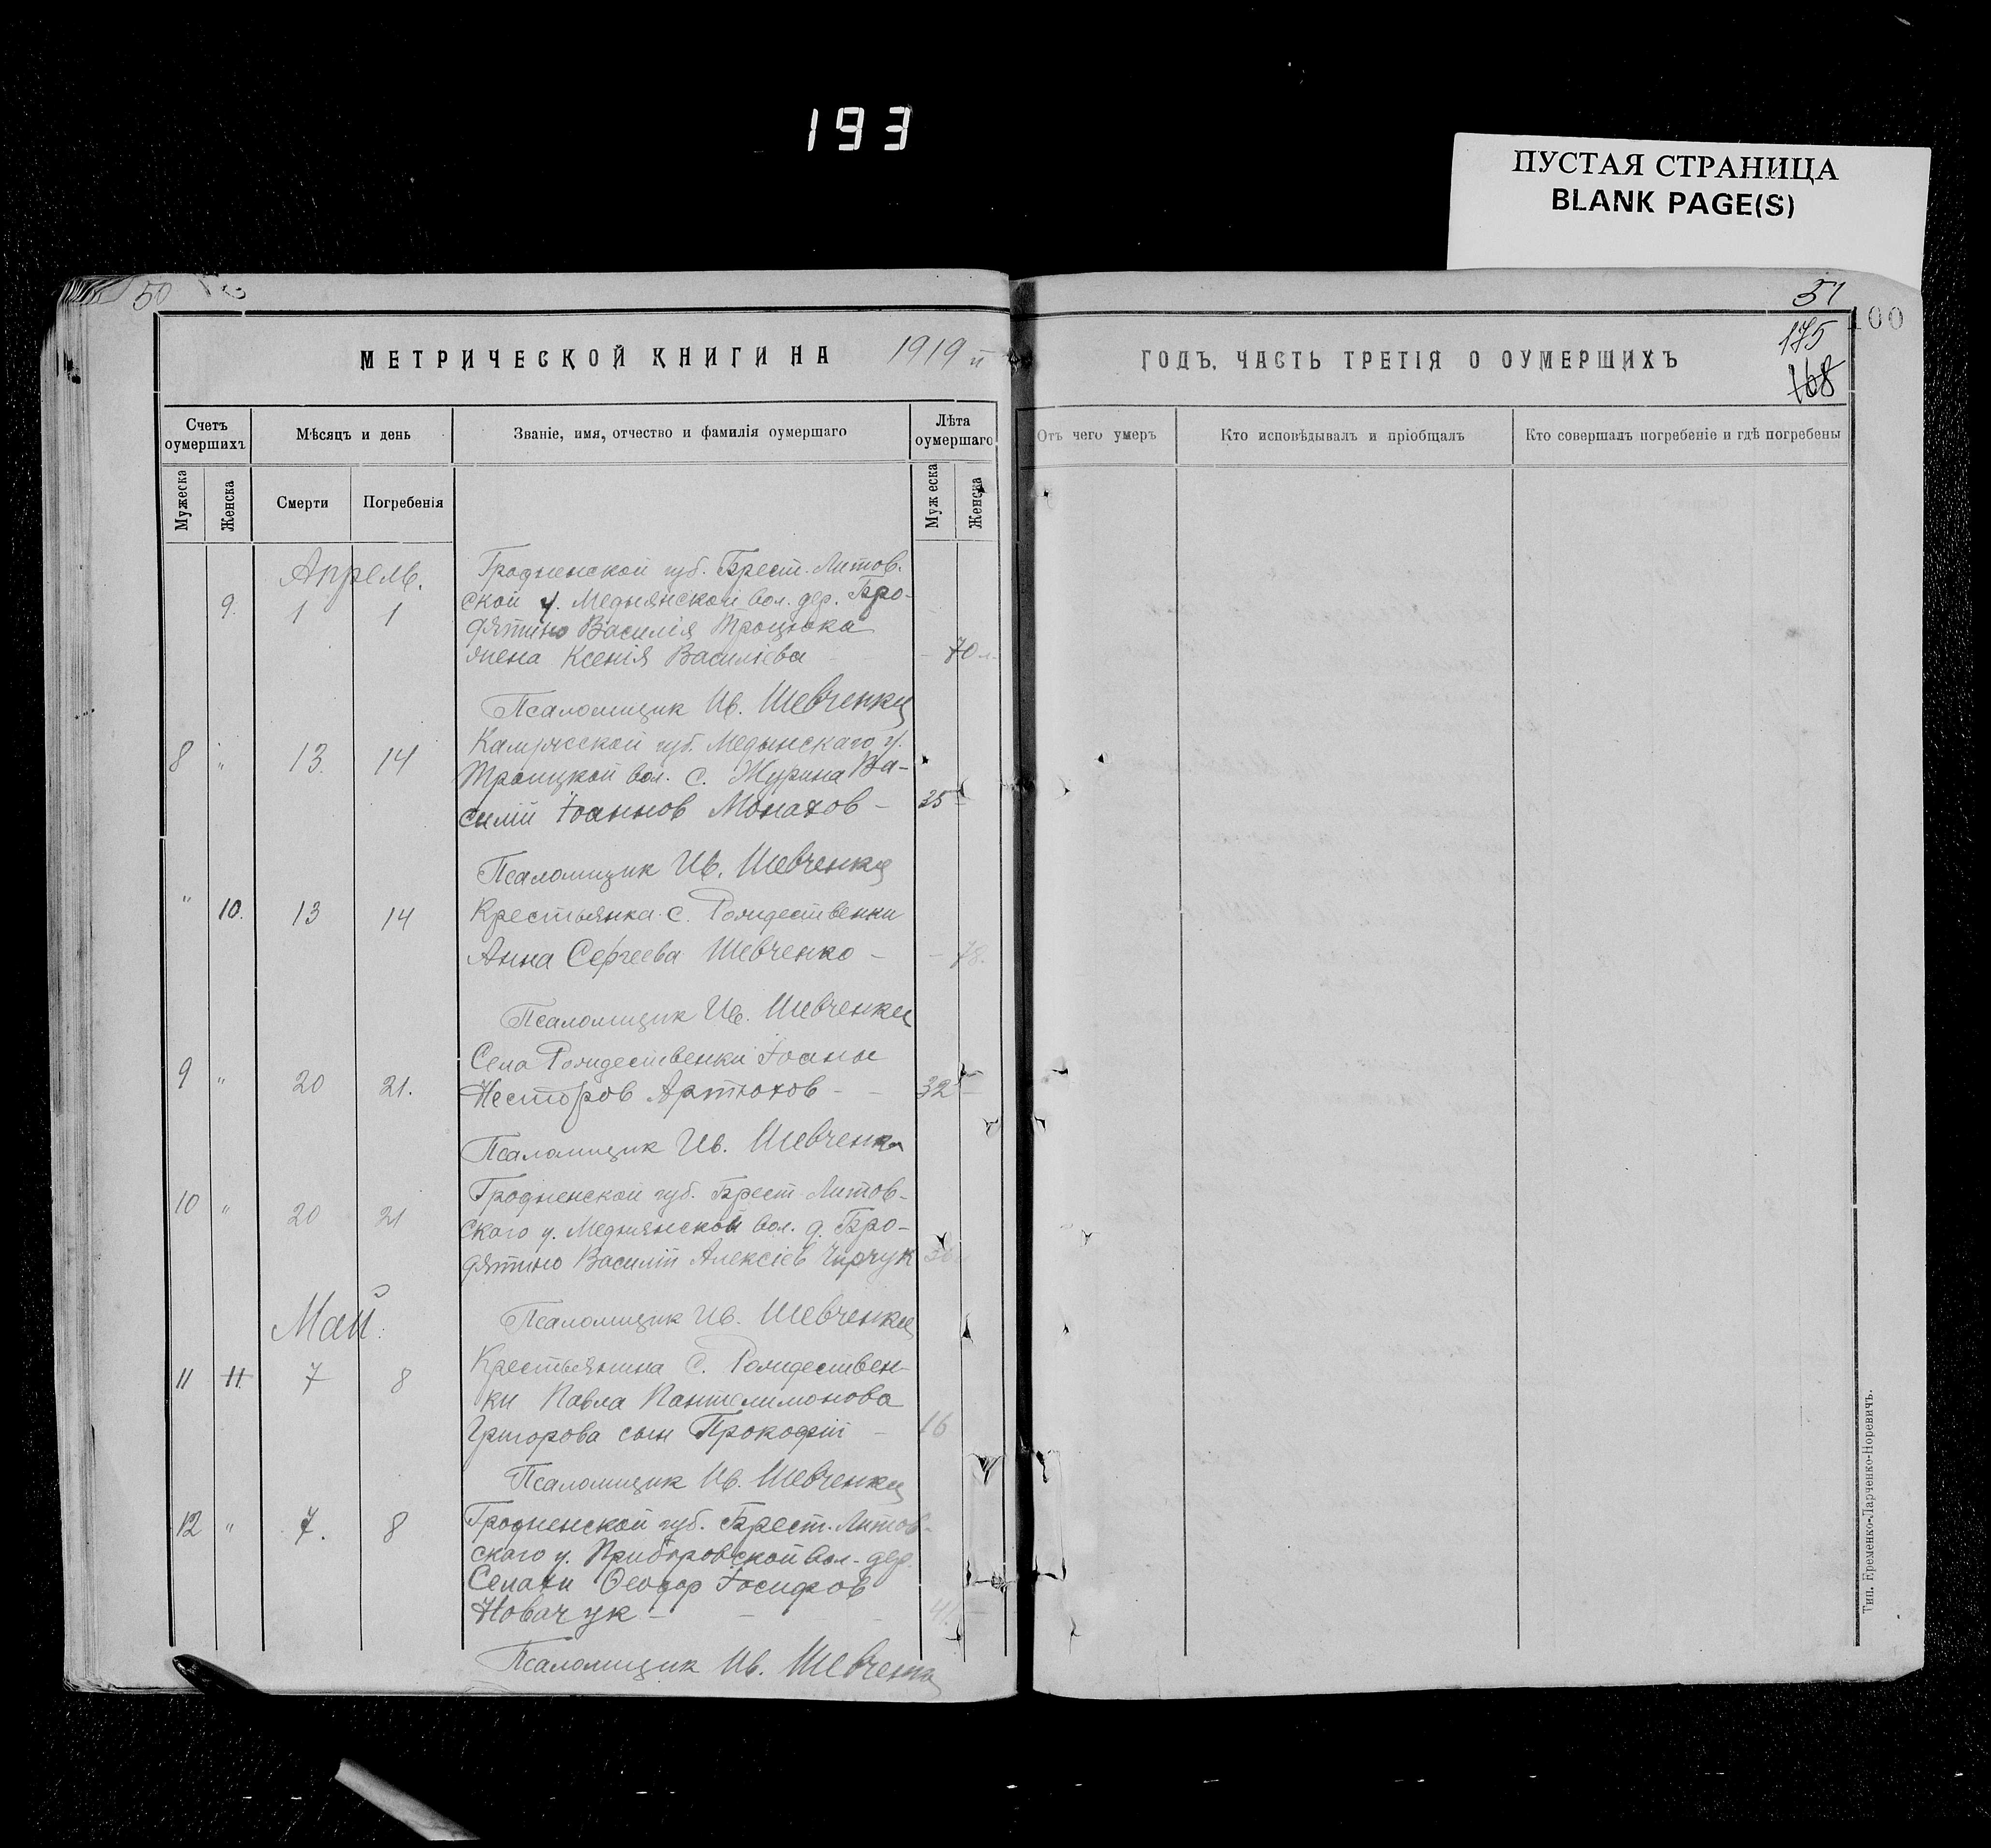 193
ПУСТАЯ СТРАНИЦА
BLANK PAGE(S)
50
51
100
175
168
МЕТРИЧЕСКОЙ КНИГИ НА 1919 й
ГОДЪ, ЧАСТЬ ТРЕТІЯ О ОУМЕРШИХЪ
Счетъ оумершихъ
Мѣсяцъ и день
Званіе, имя, отчество и фамилія оумершаго
Лѣта оумершаго
Отъ чего умеръ
Кто исповѣдывалъ и пріобщалъ
Кто совершалъ погребеніе и гдѣ погребены
Мужеска
Женска
Смерти
Погребенія
Мужеска
Женска
Апрель.
Гродненской губ. Брест. Литов.
9. 1 1 ской у. Меднянской вол. дер. Бро-
дятино Василія Троцюка
жена Ксенія Василіева - 70 л.
Псаломщик Ив. Шевченко
Калужской губ. Медынскаго у.
8 " 13. 14 Троицкой вол. с. Журина Ва-
силий Іоаннов Монахов - 35 -
Псаломщик Ив. Шевченко
" 10. 13 14 Крестьянка с. Рождественки
Анна Сергеева Шевченко - - 78.
Псаломщик Ив. Шевченко
Села Рождественки Іоанн
9 " 20 21. Несторов Артюхов - - 32 -
Псаломщик Ив. Шевченко
Гродненской губ. Брест-Литов-
10 " 20 21 ского у. Меднянской вол. д. Бро-
дятино Василий Алексіев
Май.
Псаломщик Ив. Шевченко
Крестьянина с. Рождествен-
11 11. 7 8 ки Павла Пантелимонова
Григорова сын Прокофій - 16
Псаломщик Ив. Шевченко
12 " 7. 8 Гродненской губ. Брест. Литов-
скаго у. Приборовской вол. дер.
Селахи Ѳеодор Іосифов
Новачук - - - 41.
Псаломщик Ив. Шевченко
Тип. Еременко-Ларченко-Норевичъ.